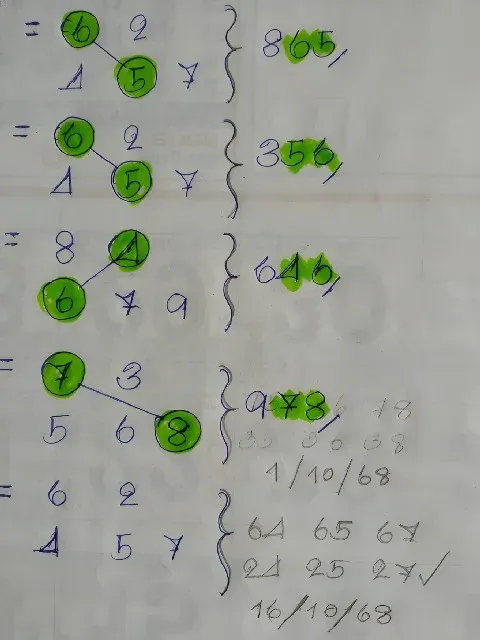 = 6 2
4 5 7 } 865,
= 6 2
4 5 7 } 356,
= 8 4
6 7 9 } 646,
= 7 3
5 6 8 } 978, 78
36 38
1/10/68
= 6 2
4 5 7 } 64 65 67
24 25 27✓
16/10/68